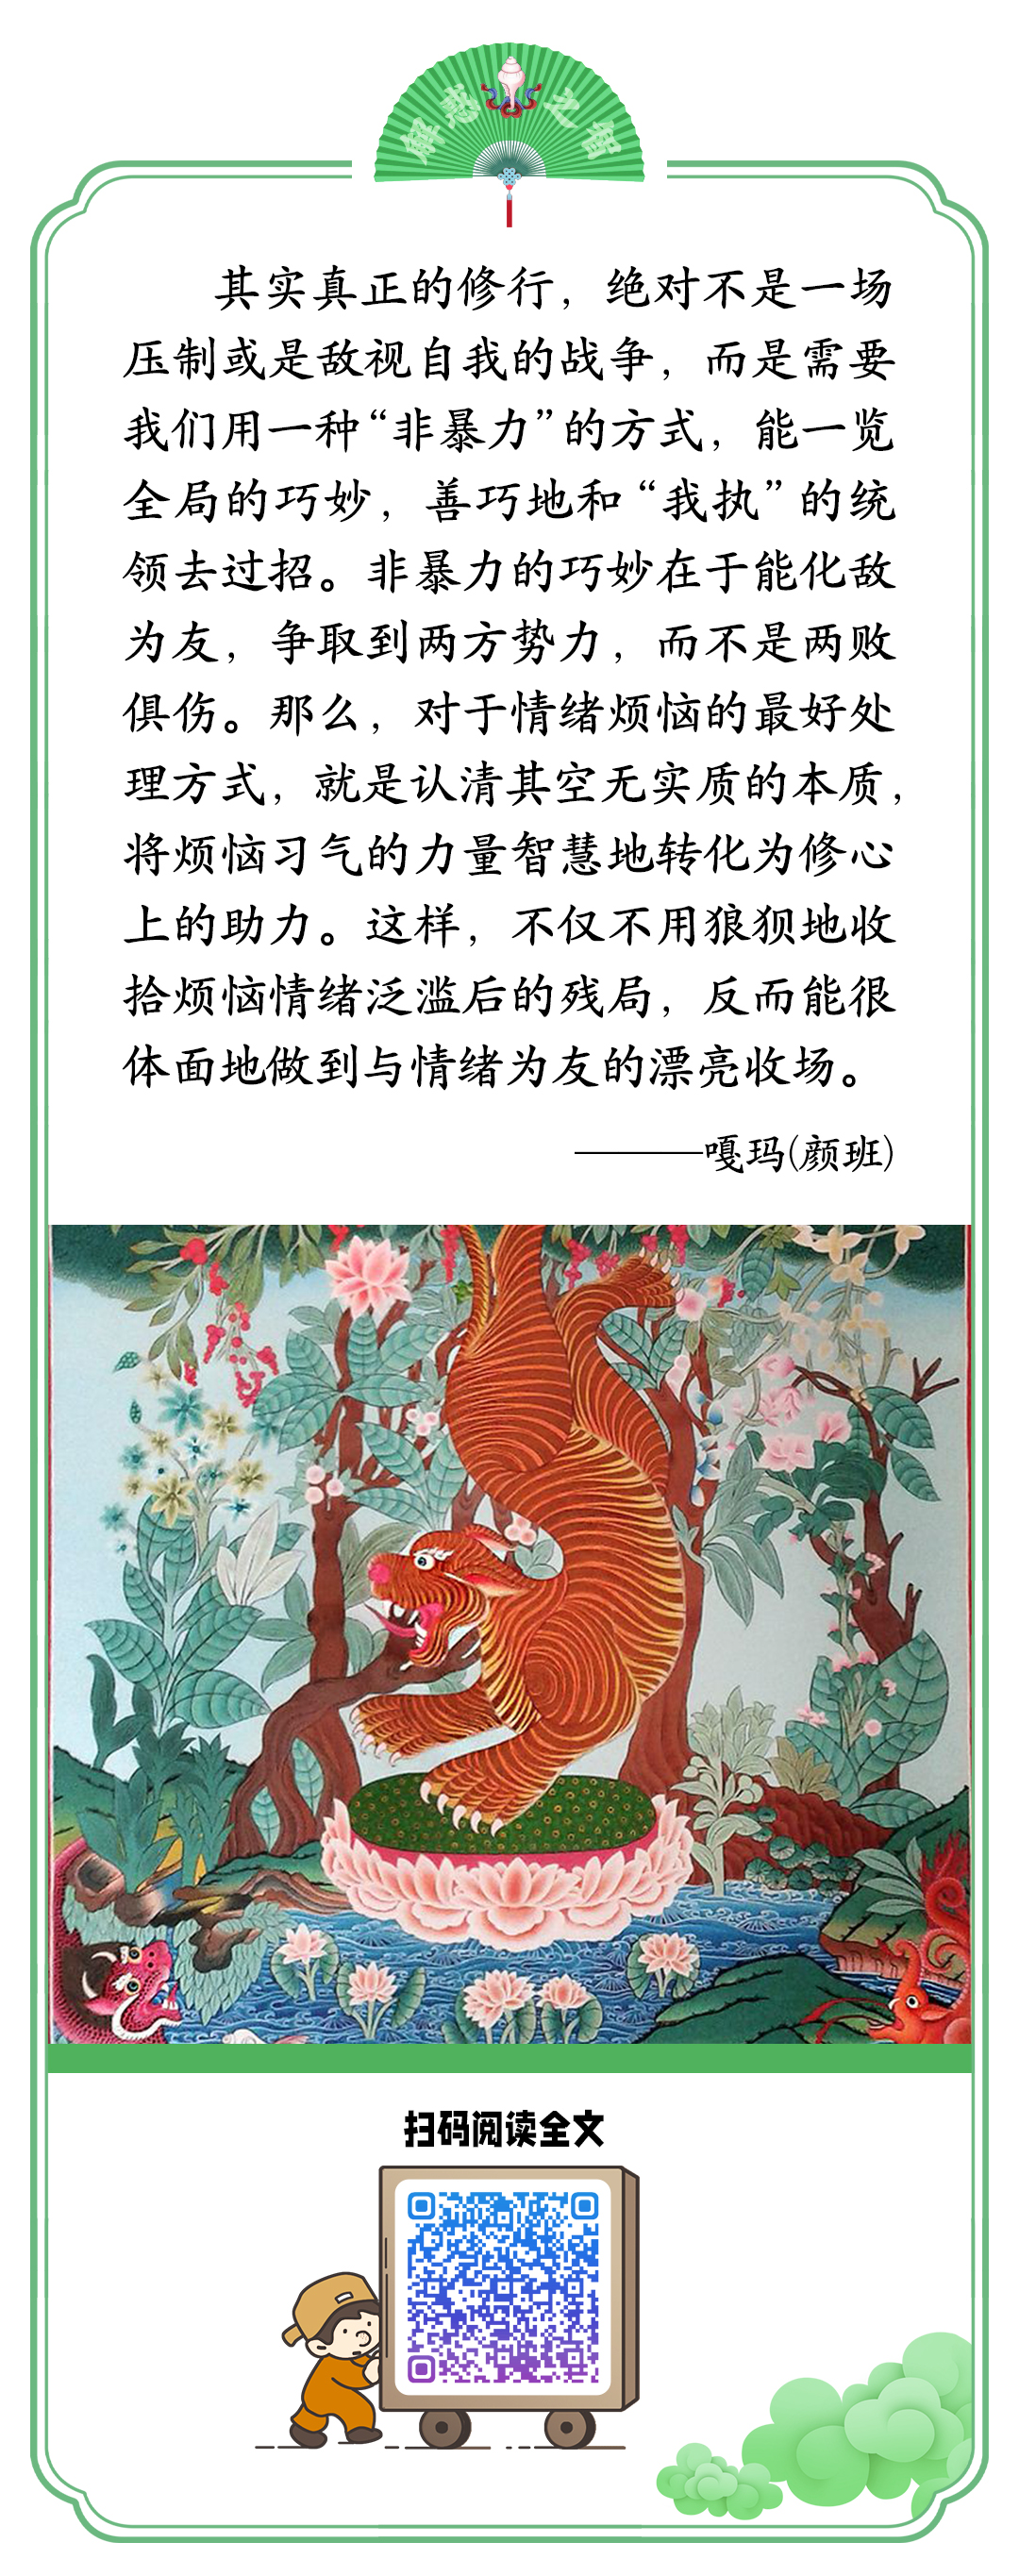 解惑之智
其实真正的修行，绝对不是一场
压制或是敌视自我的战争，而是需要
我们用一种“非暴力”的方式，能一览
全局的巧妙，善巧地和“我执”的统
领去过招。非暴力的巧妙在于能化敌
为友，争取到两方势力，而不是两败
俱伤。那么，对于情绪烦恼的最好处
理方式，就是认清其空无实质的本质，
将烦恼习气的力量智慧地转化为修心
上的助力。这样，不仅不用狼狈地收
拾烦恼情绪泛滥后的残局，反而能很
体面地做到与情绪为友的漂亮收场。
———嘎玛(颜班)
扫码阅读全文